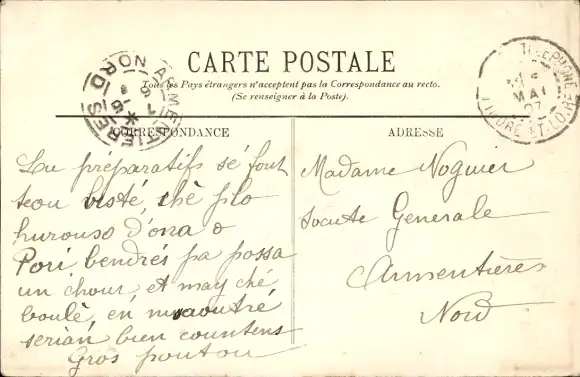 CARTE POSTALE
Tous les Pays étrangers n'acceptent pas la Correspondance au recto.
(Se renseigner à la Poste).
CORRESPONDANCE
Lu préparatifs sé fout
teou bisté, ché plo
hurouso d'ona o
Pori bendrés pa possa
un chour et may ché
boulé en
serian bien countens
Gros poutou
ADRESSE
Madame Noguier
Societe Generale
Armentières
Nord
ARMENTIERES NORD
MAI
07
INDRE-ET-LOIRE